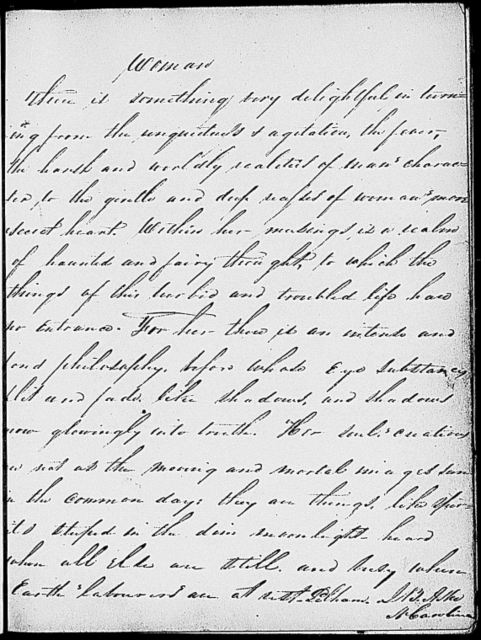 Woman
There is something very delightful in turn=
ing from the unquietness & agitation, the fever,
the harsh and worldly realities of man's charac=
ter, to the gentle and deep recesses of woman's more
secret heart. Within her musings is a realm
of haunted and fairy thought, to which the
things of this turbid and troubled life have
no entrance. For her there is an intense and
fond philosophy, before whose Eye substances
flit and fade like shadows, and shadows
grow glowingly into truth. Her soul's creations
are not as the moving and mortal images seen
in the common day; they are things, like spir=
its steeped in the dim moonlight heard
when all Else are still, and busy when
Earth's Labourers are at rest. Pelham.
N Carolina